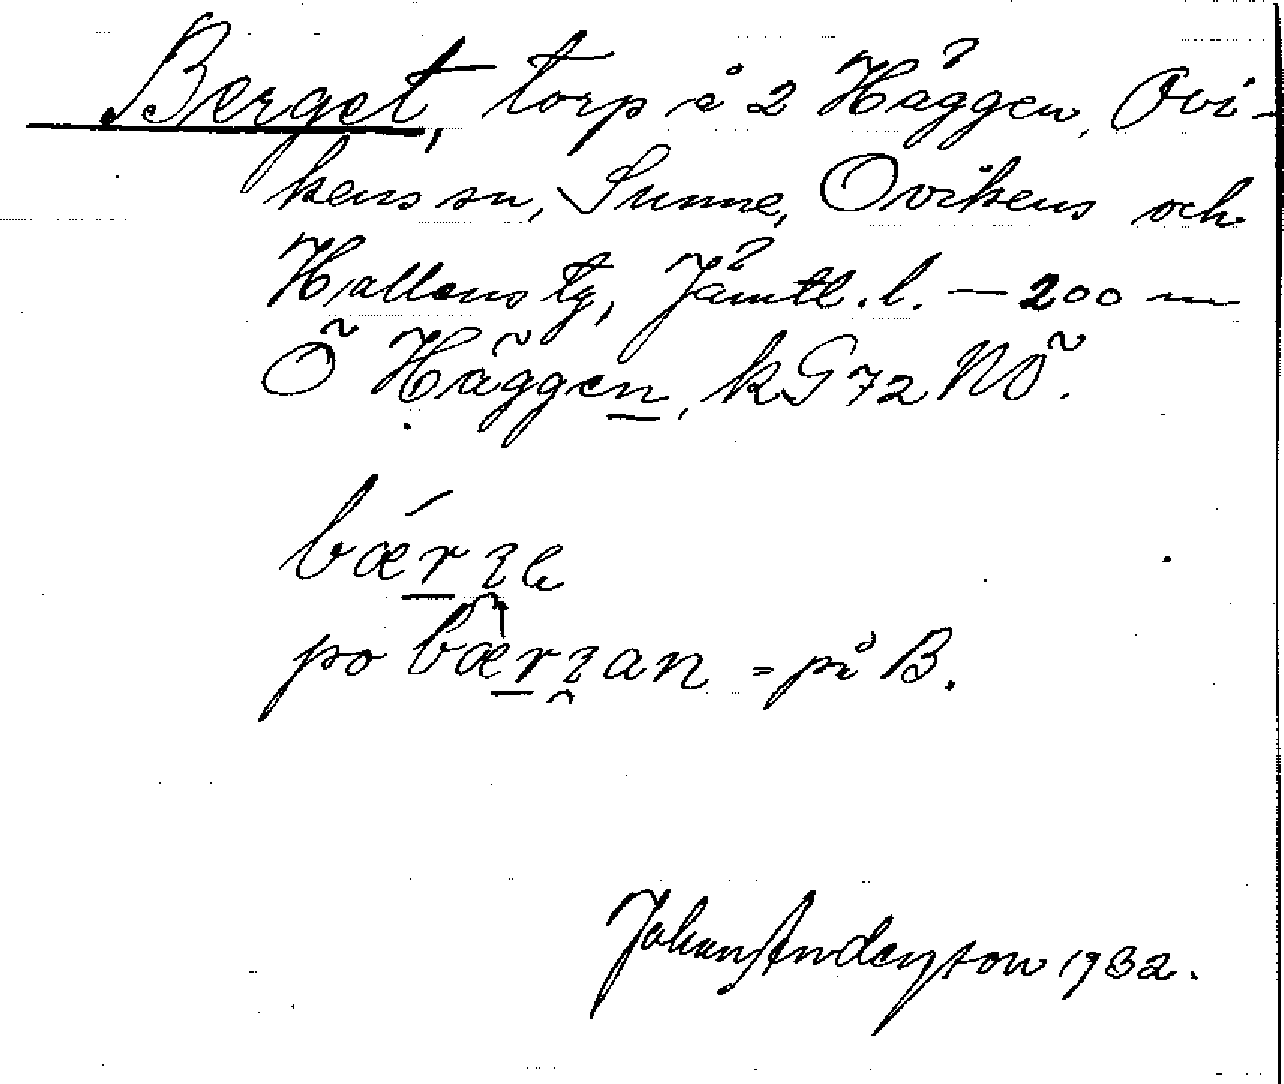 Berget, torp i 2 Häggen, Ovi-
kens sn, Sunne, Ovikens och
Hallens tg, Jämtl. l. — 200 m
Ö Häggen, kG72NÖ.
bærɀe
po bærɀan = på B.
Johan Andersson 1932.